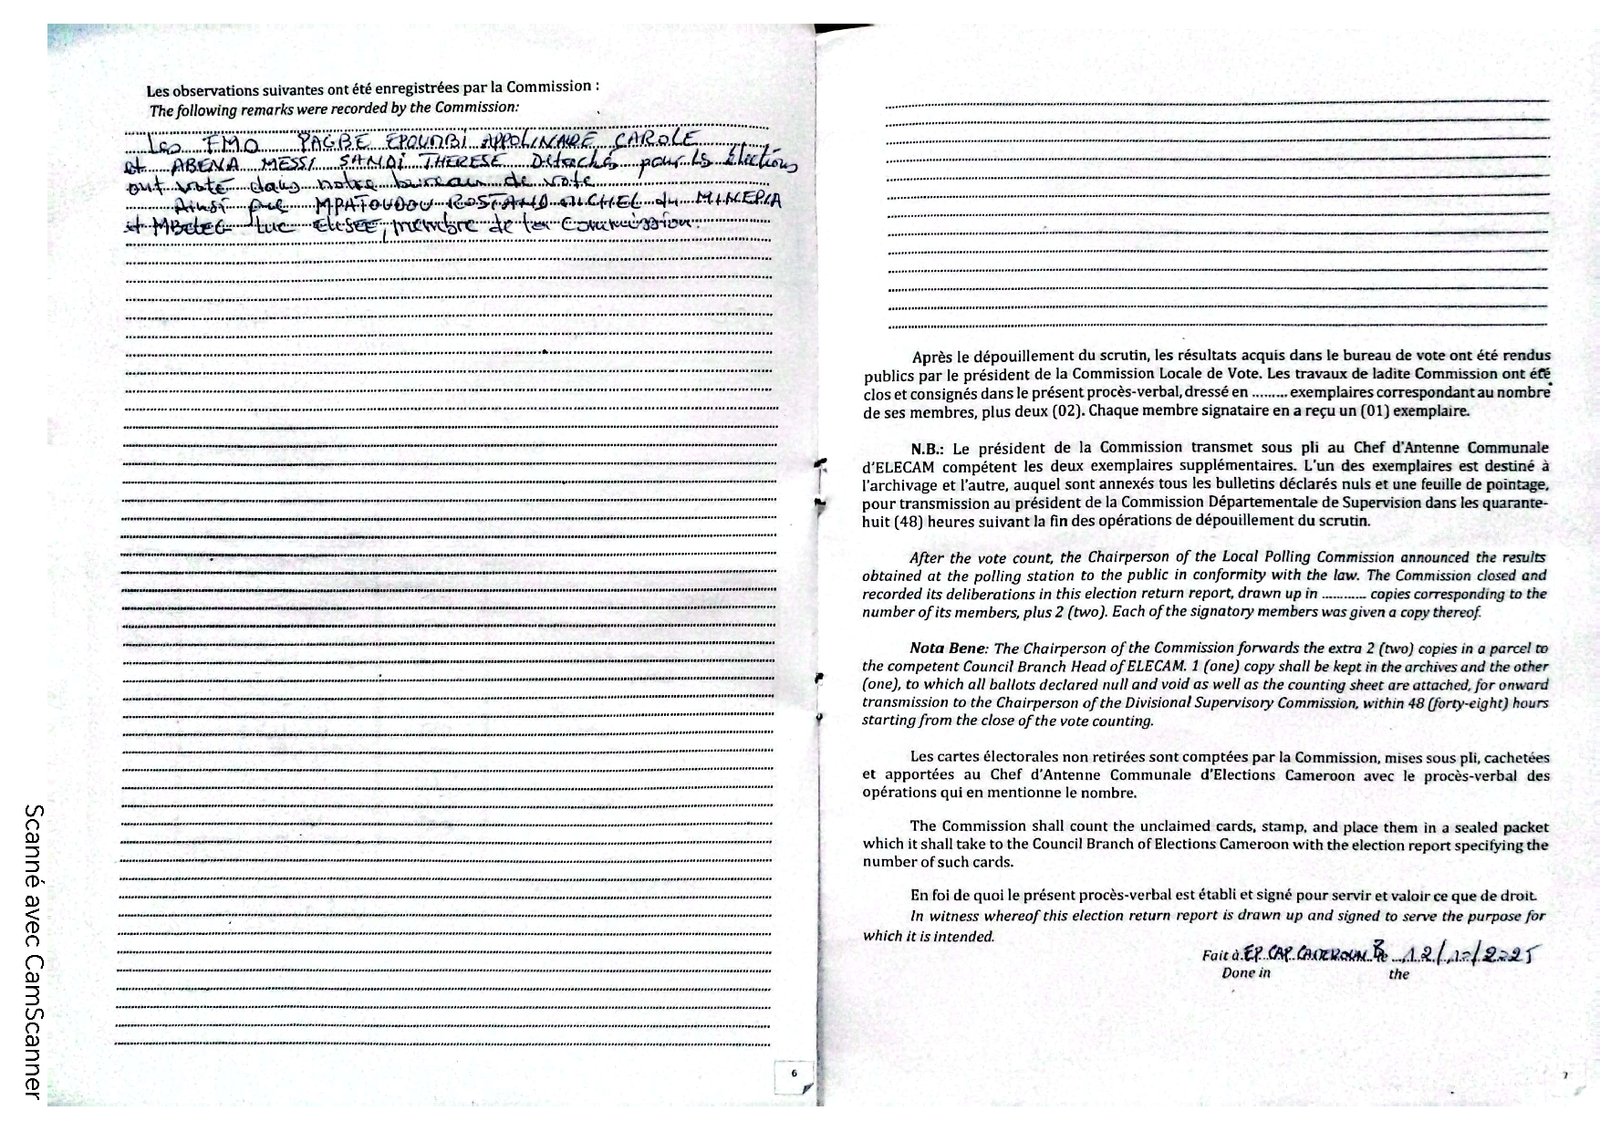 Les observations suivantes ont été enregistrées par la Commission :
The following remarks were recorded by the Commission:
Les FMO PAGBE EPOUMBI APPOLINAIRE CAROLE
et ABENA MESSI SANDI THERESE Détachés pour les élections
ont voté dans notre bureau de vote
Ainsi que MPATOUDOU ROSTAND MICHEL du MINEPIA
et Luc ELISEE, membre de la Commission.
6
Après le dépouillement du scrutin, les résultats acquis dans le bureau de vote ont été rendus
publics par le président de la Commission Locale de Vote. Les travaux de ladite Commission ont été
clos et consignés dans le présent procès-verbal, dressé en ......... exemplaires correspondant au nombre
de ses membres, plus deux (02). Chaque membre signataire en a reçu un (01) exemplaire.
N.B.: Le président de la Commission transmet sous pli au Chef d'Antenne Communale
d'ELECAM compétent les deux exemplaires supplémentaires. L'un des exemplaires est destiné à
l'archivage et l'autre, auquel sont annexés tous les bulletins déclarés nuls et une feuille de pointage,
pour transmission au président de la Commission Départementale de Supervision dans les quarante-
huit (48) heures suivant la fin des opérations de dépouillement du scrutin.
After the vote count, the Chairperson of the Local Polling Commission announced the results
obtained at the polling station to the public in conformity with the law. The Commission closed and
recorded its deliberations in this election return report, drawn up in ........... copies corresponding to the
number of its members, plus 2 (two). Each of the signatory members was given a copy thereof.
Nota Bene: The Chairperson of the Commission forwards the extra 2 (two) copies in a parcel to
the competent Council Branch Head of ELECAM. 1 (one) copy shall be kept in the archives and the other
(one), to which all ballots declared null and void as well as the counting sheet are attached, for onward
transmission to the Chairperson of the Divisional Supervisory Commission, within 48 (forty-eight) hours
starting from the close of the vote counting.
Les cartes électorales non retirées sont comptées par la Commission, mises sous pli, cachetées
et apportées au Chef d'Antenne Communale d'Elections Cameroon avec le procès-verbal des
opérations qui en mentionne le nombre.
The Commission shall count the unclaimed cards, stamp, and place them in a sealed packet
which it shall take to the Council Branch of Elections Cameroon with the election report specifying the
number of such cards.
En foi de quoi le présent procès-verbal est établi et signé pour servir et valoir ce que de droit.
In witness whereof this election return report is drawn up and signed to serve the purpose for
which it is intended.
Fait à EP CAP CAMEROUN B le 12/10/2025
Done in the
7
Scanné avec CamScanner